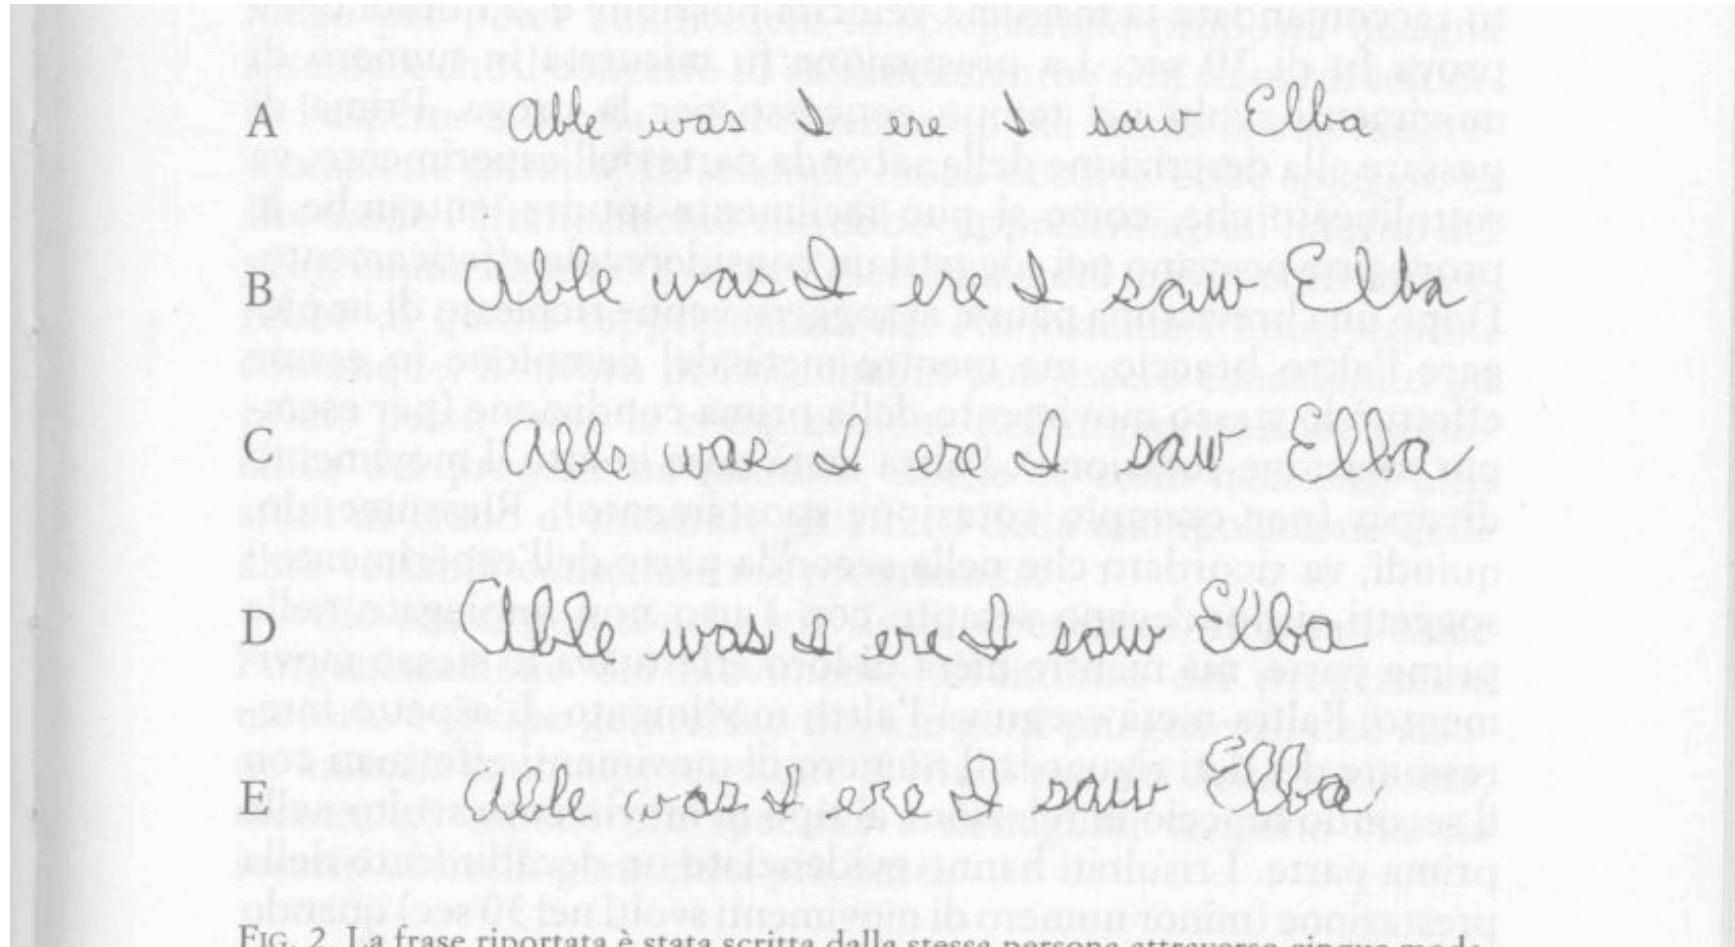 A Able was I ere I saw Elba
B Able was I ere I saw Elba
C Able was I ere I saw Elba
D Able was I ere I saw Elba
E Able was I ere I saw Elba
FIG. 2. La frase riportata è stata scritta dalla stessa persona attraverso cinque moda-